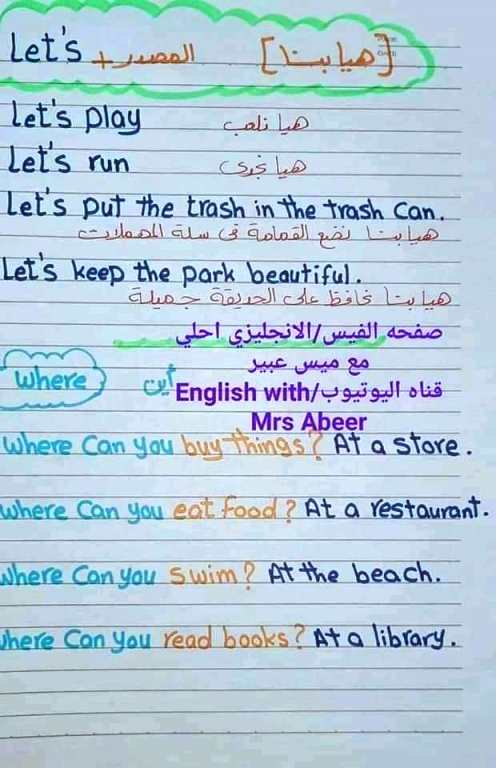 Let's + المصدر [هيا بنا]
Let's play هيا نلعب
Let's run هيا نجرى
Let's put the trash in the trash can.
هيا بنا نضع القمامة فى سلة المهملات
Let's keep the park beautiful.
هيا بنا نحافظ على الحديقة جميلة
صفحه الفيس/الانجليزي احلي
مع ميس عبير
where أين
قناه اليوتيوب/English with
Mrs Abeer
where Can you buy things? At a store.
where Can you eat food? At a restaurant.
where Can you swim? At the beach.
where Can you read books? At a library.